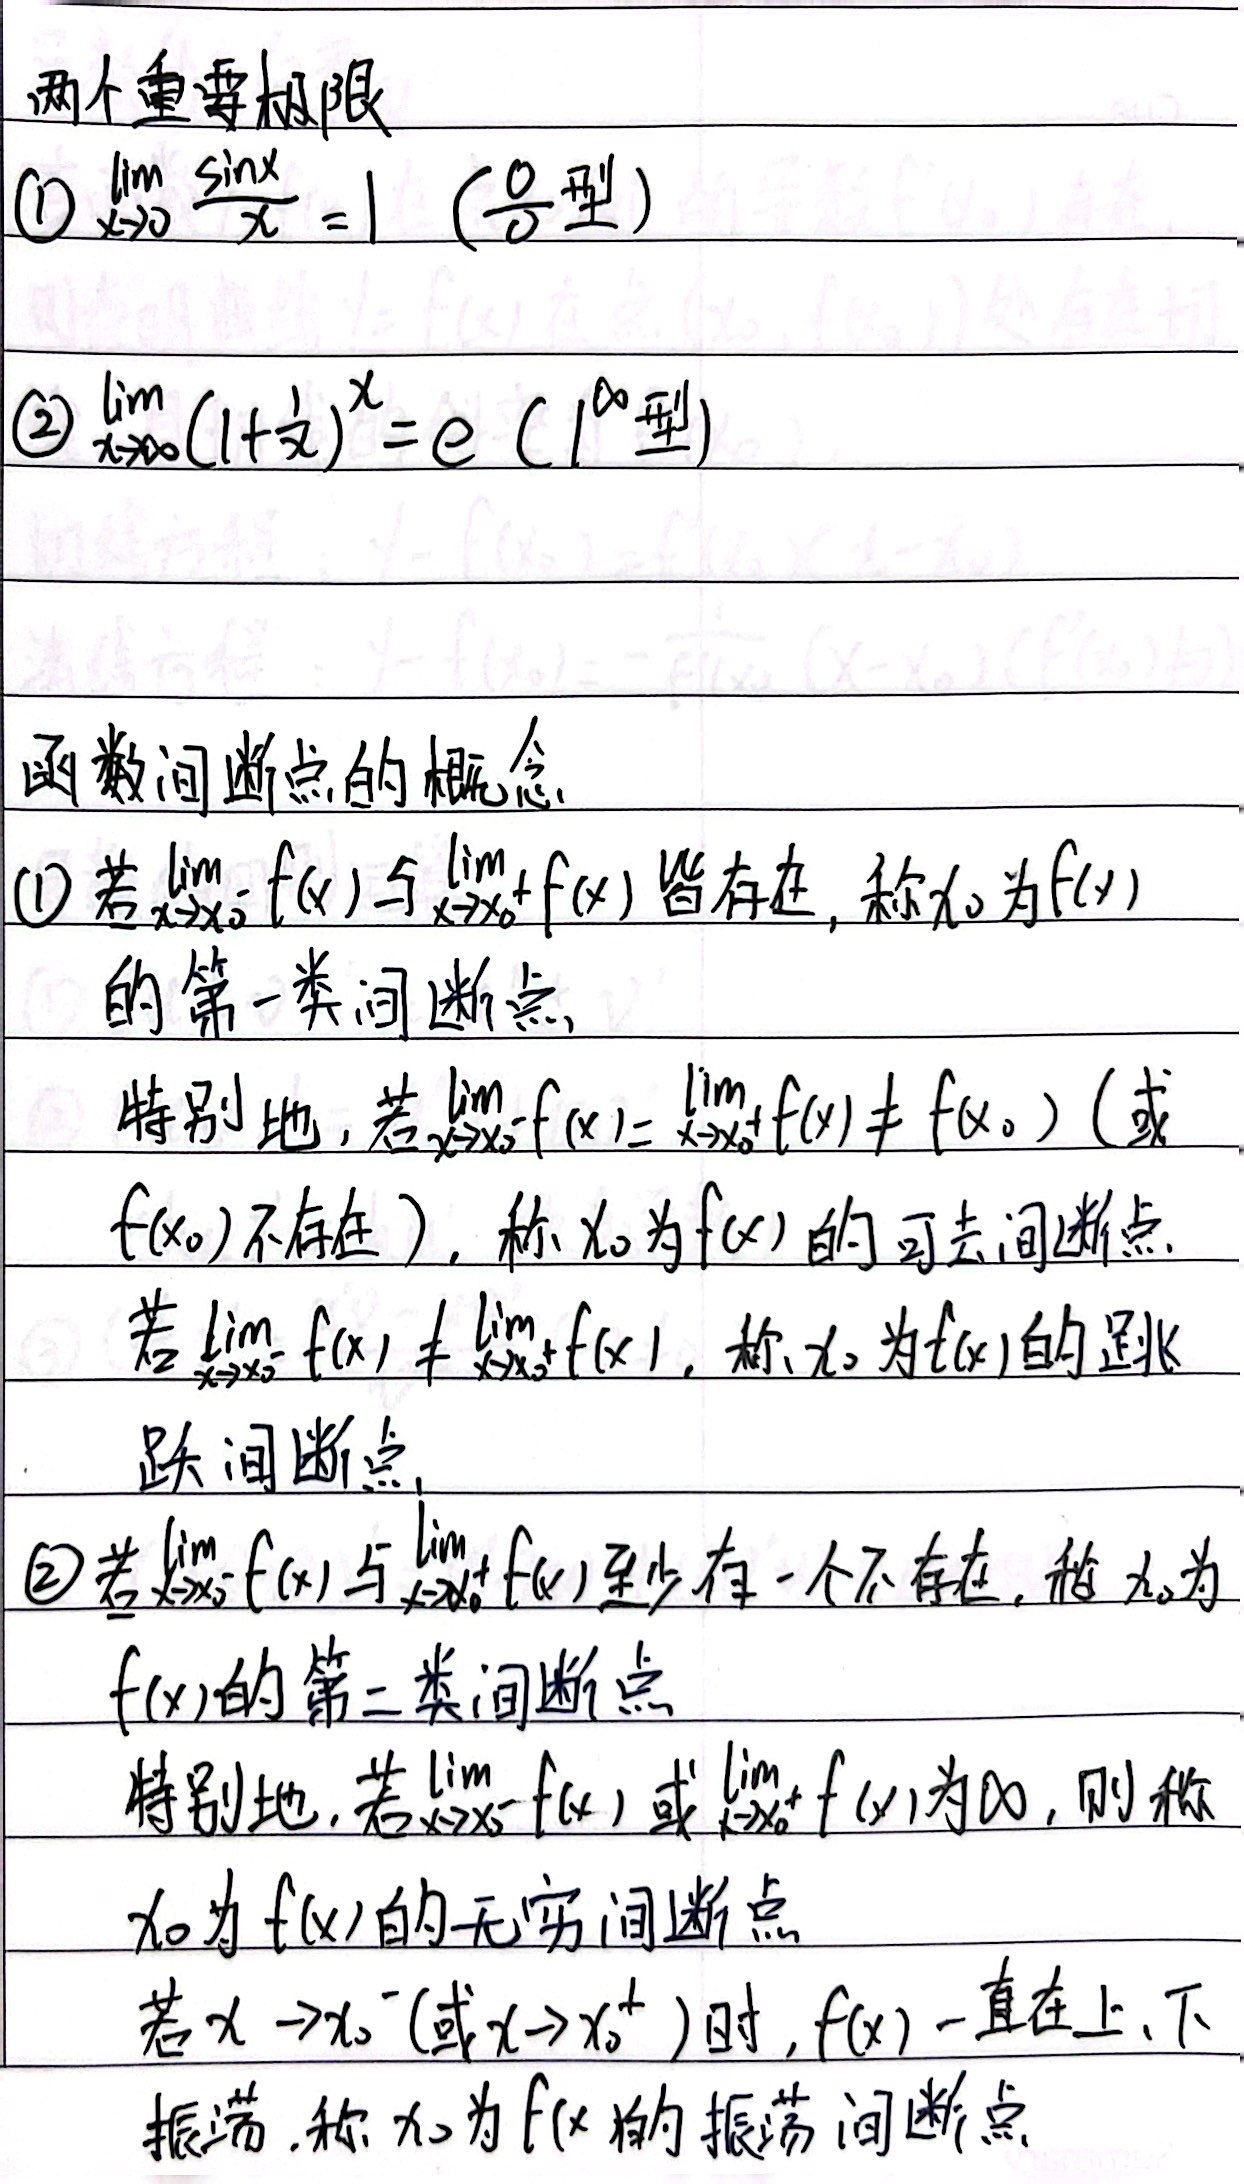 两个重要极限
① lim x→0 sinx/x = 1 (0/0型)
② lim x→∞ (1+1/x)^x = e (1^∞型)
函数间断点的概念.
① 若 lim x→x₀⁻ f(x) 与 lim x→x₀⁺ f(x) 皆存在, 称x₀为f(x)
的第一类间断点.
特别地, 若 lim x→x₀⁻ f(x) = lim x→x₀⁺ f(x) ≠ f(x₀) (或
f(x₀)不存在), 称x₀为f(x)的可去间断点.
若 lim x→x₀⁻ f(x) ≠ lim x→x₀⁺ f(x), 称x₀为f(x)的跳
跃间断点.
② 若 lim x→x₀⁻ f(x) 与 lim x→x₀⁺ f(x) 至少有一个不存在, 称x₀为
f(x)的第二类间断点
特别地, 若 lim x→x₀⁻ f(x) 或 lim x→x₀⁺ f(x) 为∞, 则称
x₀为f(x)的无穷间断点
若x→x₀⁻(或x→x₀⁺)时, f(x)一直在上、下
振荡, 称x₀为f(x)的振荡间断点